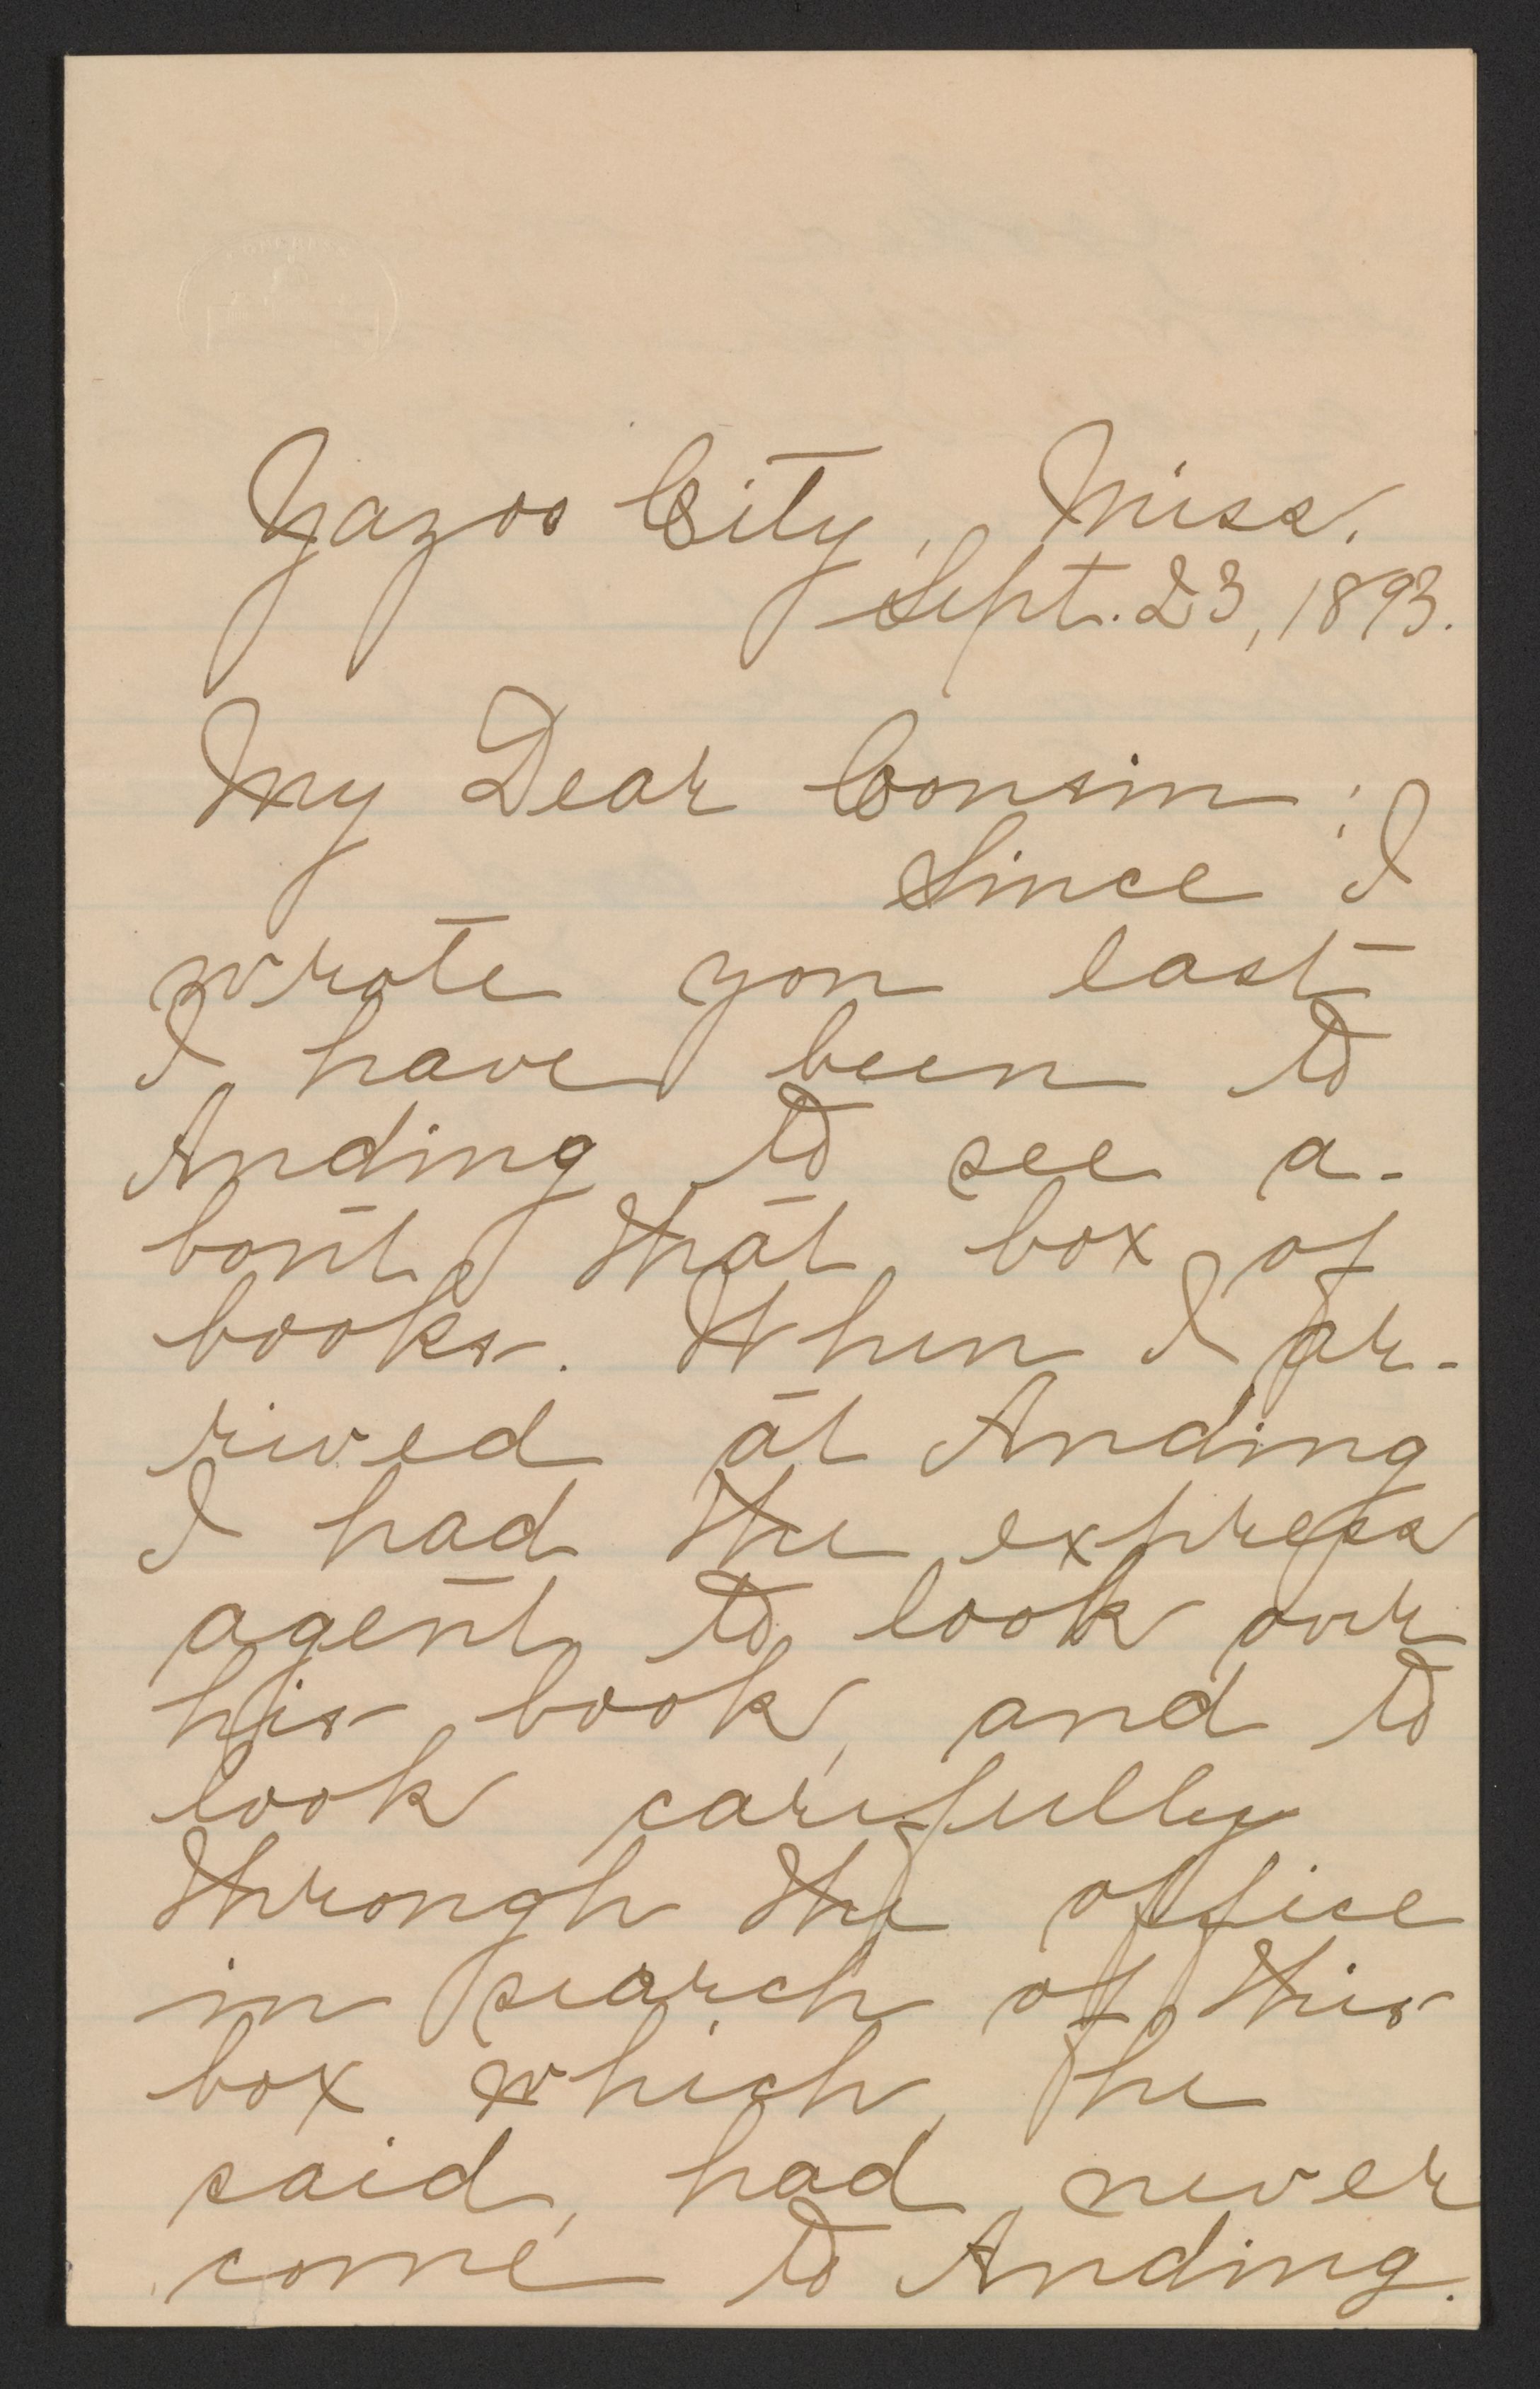 Yazoo City, Miss.
Sept. 23, 1893.
My Dear Cousin:
Since I
wrote you last
I have been to
Anding to see a-
bout that box of
books. When I ar-
rived at Anding
I had the express
agent to look over
his book, and to
look carefully
through the office
in search of this
box which, he
said, had never
come to Anding.